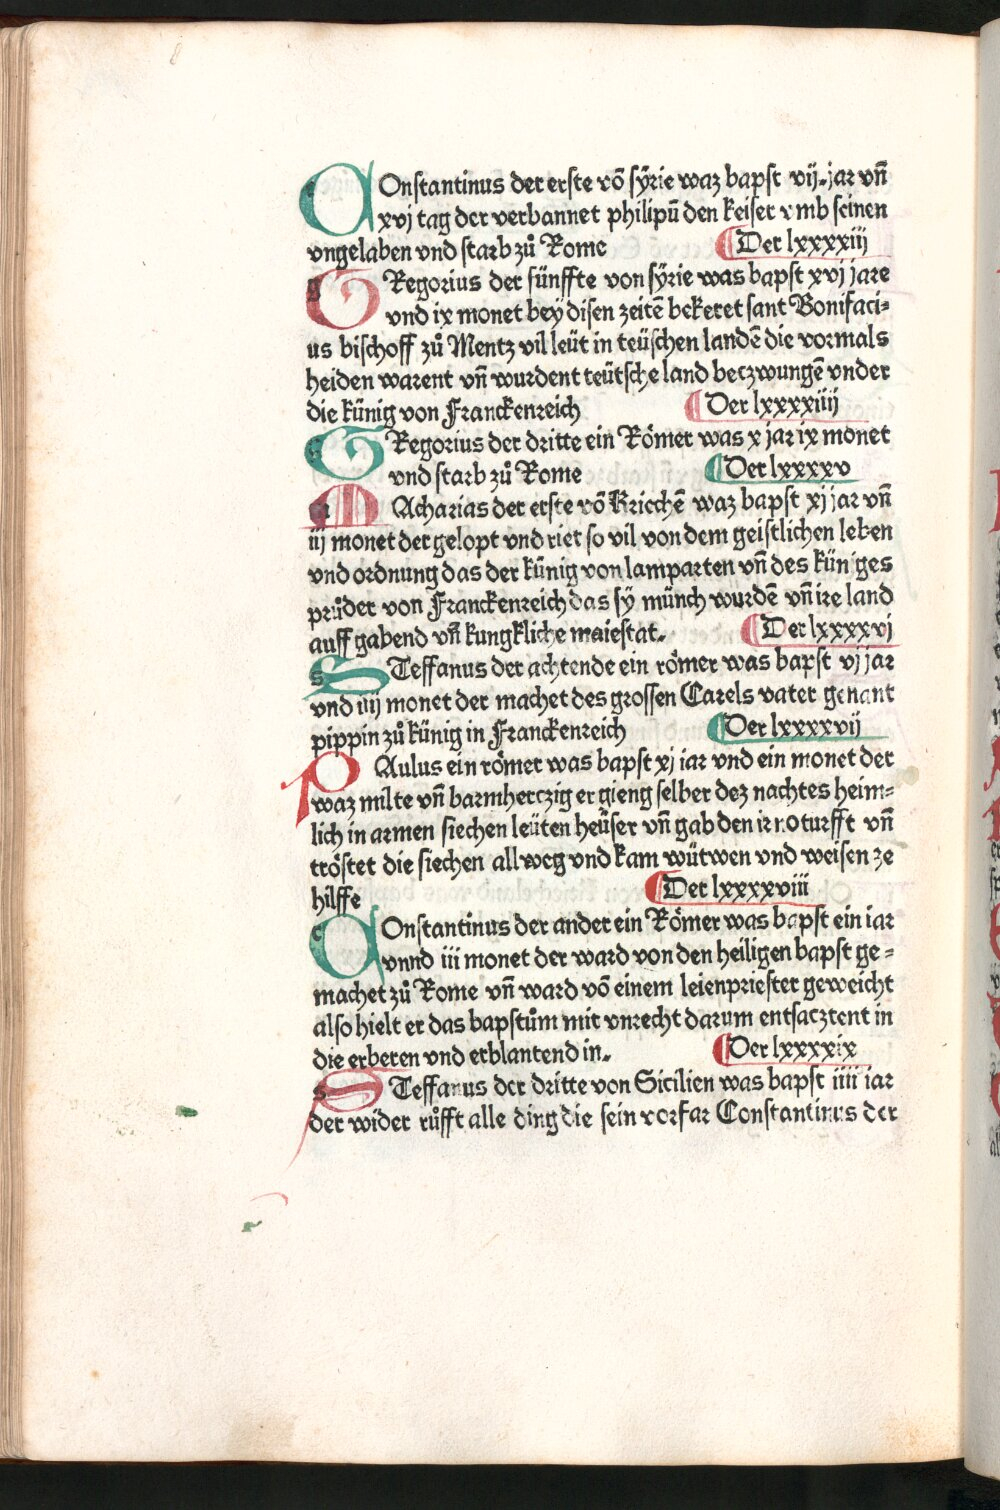 COnstantinus der erste võ sÿrie waz bapst vij. jar vñ
xvj tag der verbannet philipũ den keiser vmb seinen
vngelaben vnd starb zů Rome Der lxxxxiij
GRegorius der fünffte von sÿrie was bapst xvj jare
vnd ix monet bey disen zeitẽ bekeret sant Bonifaci⸗
us bischoff zů Mentz vil leüt in teüschen landẽ die vormals
heiden warent vñ wurdent teütsche land beczwungẽ vnder
die künig von Franckenreich Der lxxxxiiij
GRegorius der dritte ein Römer was x jar ix monet
vnd starb zů Rome Der lxxxxv
Acharias der erste võ Kriechẽ waz bapst xj jar vñ
iij monet der gelopt vnd riet so vil von dem geistlichen leben
vnd ordnung das der künig von lamparten vñ des küniges
průder von Franckenreich das sÿ münch wurdẽ vñ ire land
auff gabend vñ kungkliche maiestat. Der lxxxxvj
STeffanus der achtende ein römer was bapst vj jar
vnd iiij monet der machet des grossen Carels vater genant
pippin zů künig in Franckenreich Der lxxxxvij
PAulus ein römer was bapst xj iar vnd ein monet der
waz milte vñ barmherczig er gieng selber dez nachtes heim⸗
lich in armen siechen leüten heüser vñ gab den ir noturfft vñ
tröstet die siechen allweg vnd kam wütwen vnd weisen ze
hilffe Der lxxxxviii
COnstantinus der ander ein Römer was bapst ein iar
vnnd iii monet der ward von den heiligen bapst ge⸗
machet zů Rome vñ ward võ einem leienpriester geweicht
also hielt er das bapstům mit vnrecht darum entsacztent in
die erberen vnd erblantend in. Der lxxxxix
STeffanus der dritte von Sicilien was bapst iiii iar
der wider růfft alle ding die sein vorfar Constantinus der